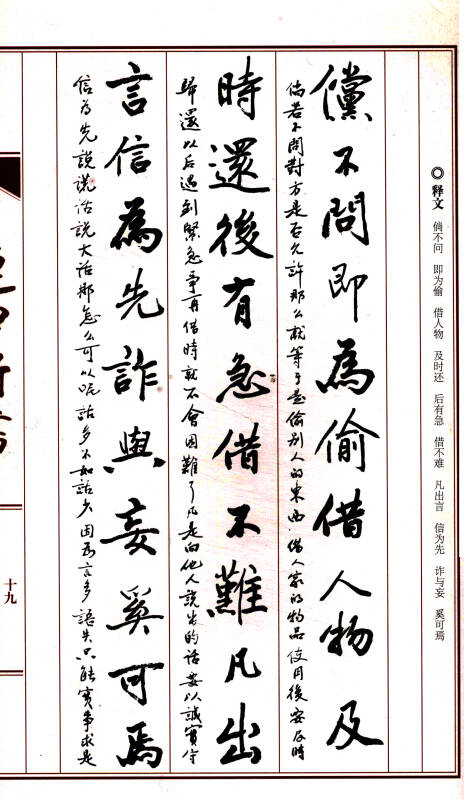 ◎释文 倘不问 即为偷 借人物 及时还 后有急 借不难 凡出言 信为先 诈与妄 奚可焉
儻不問即為偷借人物及
倘若不問對方是否允許那么就等于是偷別人的東西借人家的物品使用後要及時
時還後有急借不難凡出
歸還以后遇到緊急事再借時就不會困難了凡是向他人說出的話要以誠實守
言信為先詐與妄奚可焉
信為先說謊話說大話那怎么可以呢話多不如話少因為言多語失只能實事求是
十九